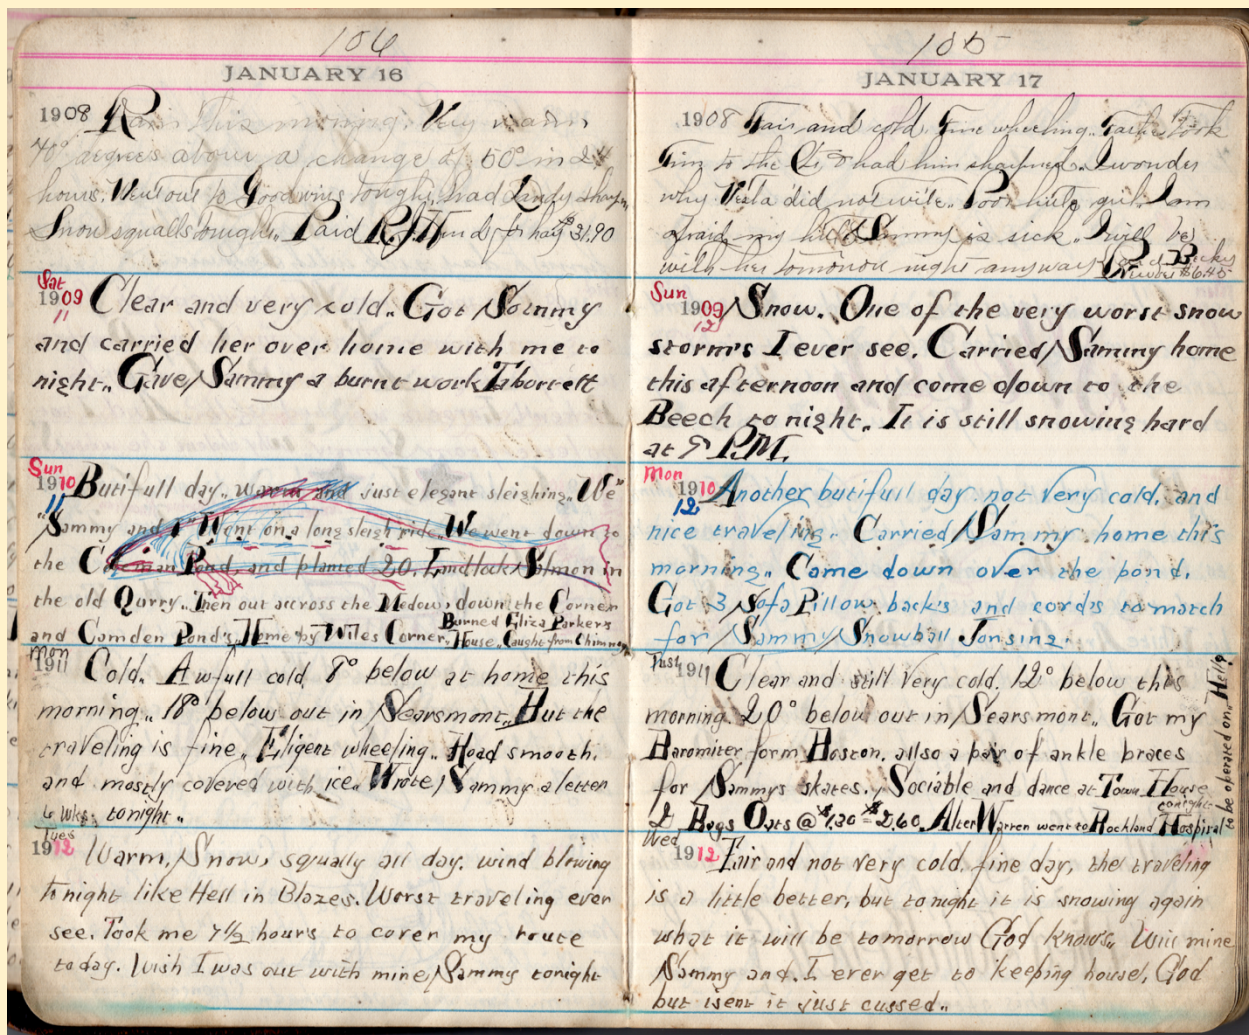 106
JANUARY 16
1908 Rain this morning. Very warm
40° degrees above a change of 50° in 24
hours. Went out to Goodwins tonight had Landy sharp
Snow squalls tonight. Paid R. for hay $31.90
Sat
1909 Clear and very cold.. Got Sammy
11
and carried her over home with me to
night.. Gave Sammy a burnt work Taborett
Sun
1910 Butifull day.. warm and just elegant sleighing.. "We"
11
"Sammy and I" Went on a long sleigh ride.. We went down to
the Pond, and planted 20. Landlock Salmon in
the old Qurry.. Then out accross the Medow, down the Corner
and Camden Pond's, Home by Wiles Corner. Burned Eliza Parker's
House.. Caught from Chimney
Mon
1911 Cold. Awfull cold. 8° below at home this
morning.. 18° below out in Searsmont.. But the
traveling is fine.. Eligent wheeling.. Road smooth.
and mostly covered with ice.. Wrote Sammy a letter
6 Wks. tonight..
Tues
1912 Warm, Snow, squally all day. wind blowing
tonight like Hell in Blazes. Worst traveling ever
see. Took me 7½ hours to cover my route
today. Wish I was out with mine Sammy tonight
105
JANUARY 17
1908 Fair and cold. Fine wheeling.. Father Took
Jim to the & had him sharpned.. I wonder
why did not write.. Poor little girl. I am
afraid my little Sammy is sick.. I will be
with her tomorrow night anyway. Paid Becky
$6.45
Sun
1909 Snow. One of the very worst snow
12
storm's I ever see. Carried Sammy home
this afternoon and come down to the
Beech to night.. It is still snowing hard
at 9 P.M.
Mon
1910 Another butifull day. not very cold. and
12
nice traveling.. Carried Sammy home this
morning.. Came down over the pond.
Got 3 Sofa Pillow back's and cord's to match
for Sammy Snowball Jonsing.
Tusy
1911 Clear and still very cold. 12° below this
morning. 20° below out in Searsmont.. Got my
Baromiter form Boston. allso a pay of ankle braces
for Sammys skates. Sociable and dance at Town House
tonight
2 Bags Oats @ $1.30 = $2.60. Alter Warren went to Rockland Hospiral
to be operated on.. Hell?
Wed
1912 Fair and not very cold. fine day, the traveling
is a little better, but tonight it is snowing again
what it will be tomorrow God knows.. Will mine
Sammy and. I ever get to keeping house, God
but isent it just cussed..